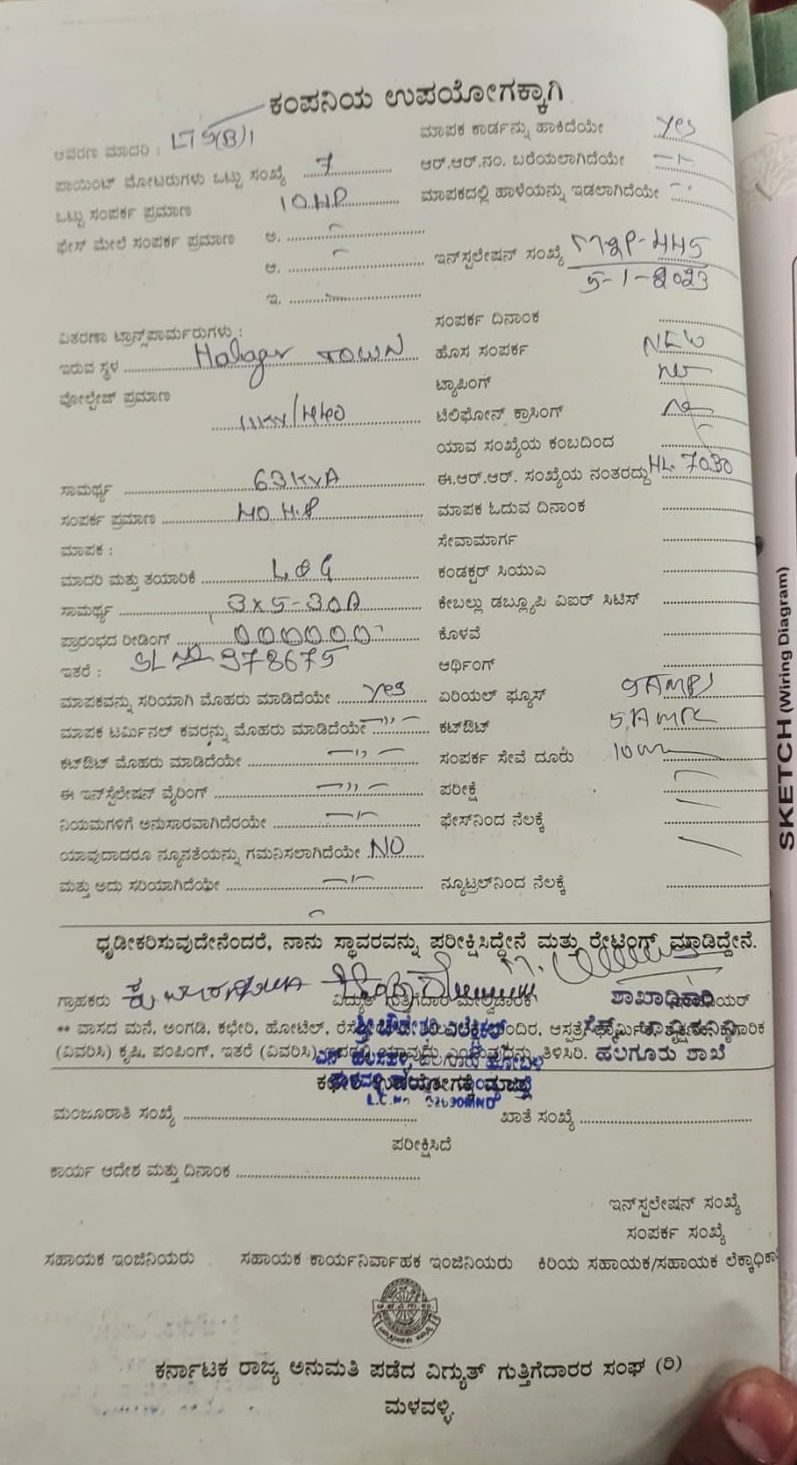 ಕಂಪನಿಯ ಉಪಯೋಗಕ್ಕಾಗಿ
ಆವರಣ ಮಾದರಿ : LT 5(B)1 ಮಾಪಕ ಕಾರ್ಡನ್ನು ಹಾಕಿದೆಯೇ Yes
ಪಾಯಿಂಟ್ ಮೋಟರುಗಳು ಒಟ್ಟು ಸಂಖ್ಯೆ 7 ಆರ್.ಆರ್.ನಂ. ಬರೆಯಲಾಗಿದೆಯೇ —ı—
ಒಟ್ಟು ಸಂಪರ್ಕ ಪ್ರಮಾಣ 10 H.P ಮಾಪಕದಲ್ಲಿ ಹಾಳೆಯನ್ನು ಇಡಲಾಗಿದೆಯೇ
ಫೇಸ್ ಮೇಲೆ ಸಂಪರ್ಕ ಪ್ರಮಾಣ ಅ.
ಆ. ಇನ್‌ಸ್ಟಲೇಷನ್ ಸಂಖ್ಯೆ 445
ಇ. 5-1-2023
ಸಂಪರ್ಕ ದಿನಾಂಕ
ವಿತರಣಾ ಟ್ರಾನ್ಸ್‌ಪಾರ್ಮರುಗಳು :
ಇರುವ ಸ್ಥಳ TOWN ಹೊಸ ಸಂಪರ್ಕ NEW
ವೋಲ್ಟೇಜ್ ಪ್ರಮಾಣ ಟ್ಯಾಪಿಂಗ್ No
11KV/440 ಟೆಲಿಫೋನ್ ಕ್ರಾಸಿಂಗ್ No
ಯಾವ ಸಂಖ್ಯೆಯ ಕಂಬದಿಂದ
ಸಾಮರ್ಥ್ಯ 63KVA ಈ.ಆರ್.ಆರ್. ಸಂಖ್ಯೆಯ ನಂತರದ್ದು HL 7030
ಸಂಪರ್ಕ ಪ್ರಮಾಣ 40 H.P ಮಾಪಕ ಓದುವ ದಿನಾಂಕ
ಮಾಪಕ : ಸೇವಾಮಾರ್ಗ
ಮಾದರಿ ಮತ್ತು ತಯಾರಿಕೆ L&G ಕಂಡಕ್ಟರ್ ಸಿಯುಎ
ಸಾಮರ್ಥ್ಯ 3x5-30A ಕೇಬಲ್ಲು ಡಬ್ಲ್ಯೂಪಿ ವಿಐರ್ ಸಿಟಿಸ್
ಪ್ರಾರಂಭದ ರೀಡಿಂಗ್ 000000 ಕೊಳವೆ
ಇತರೆ : SL No 978675 ಆರ್ಥಿಂಗ್
ಮಾಪಕವನ್ನು ಸರಿಯಾಗಿ ಮೊಹರು ಮಾಡಿದೆಯೇ Yes ಏರಿಯಲ್ ಫ್ಯೂಸ್ 5AMPS
ಮಾಪಕ ಟರ್ಮಿನಲ್ ಕವರನ್ನು ಮೊಹರು ಮಾಡಿದೆಯೇ —ıı— ಕಟ್‌ಔಟ್
ಕಟ್‌ಔಟ್ ಮೊಹರು ಮಾಡಿದೆಯೇ —ıı— ಸಂಪರ್ಕ ಸೇವೆ ದೂರು
ಈ ಇನ್‌ಸ್ಟೆಲೇಷನ್ ವೈರಿಂಗ್ —ıı— ಪರೀಕ್ಷೆ
ನಿಯಮಗಳಿಗೆ ಅನುಸಾರವಾಗಿದೆರಯೇ —ıı— ಫೇಸ್‌ನಿಂದ ನೆಲಕ್ಕೆ
ಯಾವುದಾದರೂ ನ್ಯೂನತೆಯನ್ನು ಗಮನಿಸಲಾಗಿದೆಯೇ NO
ಮತ್ತು ಅದು ಸರಿಯಾಗಿದೆಯೇ —ıı— ನ್ಯೂಟ್ರಲ್‌ನಿಂದ ನೆಲಕ್ಕೆ
ಧೃಡೀಕರಿಸುವುದೇನೆಂದರೆ, ನಾನು ಸ್ಥಾವರವನ್ನು ಪರೀಕ್ಷಿಸಿದ್ದೇನೆ ಮತ್ತು ರೇಟಿಂಗ್ ಮಾಡಿದ್ದೇನೆ.
ಗ್ರಾಹಕರು ವಿದ್ಯುತ್ ಗುತ್ತಿಗೆದಾರ ಮೇಲ್ವಿಚಾರಕ ಶಾಖಾಧಿಕಾರಿ
** ವಾಸದ ಮನೆ, ಅಂಗಡಿ, ಕಛೇರಿ, ಹೋಟೆಲ್,
(ವಿವರಿಸಿ) ಕೃಷಿ, ಪಂಪಿಂಗ್, ಇತರೆ (ವಿವರಿಸಿ) ತಿಳಿಸಿರಿ. ಹಲಗೂರು ಶಾಖೆ
ಕಛೇರಿ ಉಪಯೋಗಕ್ಕೆ ಮಾತ್ರ
ಮಂಜೂರಾತಿ ಸಂಖ್ಯೆ ಖಾತೆ ಸಂಖ್ಯೆ
ಪರೀಕ್ಷಿಸಿದೆ
ಕಾರ್ಯ ಆದೇಶ ಮತ್ತು ದಿನಾಂಕ
ಇನ್‌ಸ್ಟಲೇಷನ್ ಸಂಖ್ಯೆ
ಸಂಪರ್ಕ ಸಂಖ್ಯೆ
ಸಹಾಯಕ ಇಂಜಿನಿಯರು ಸಹಾಯಕ ಕಾರ್ಯನಿರ್ವಾಹಕ ಇಂಜಿನಿಯರು ಕಿರಿಯ ಸಹಾಯಕ/ಸಹಾಯಕ ಲೆಕ್ಕಾಧಿಕಾ
ಕರ್ನಾಟಕ ರಾಜ್ಯ ಅನುಮತಿ ಪಡೆದ ವಿದ್ಯುತ್ ಗುತ್ತಿಗೆದಾರರ ಸಂಘ (ರಿ)
ಮಳವಳ್ಳಿ.
SKETCH (Wiring Diagram)